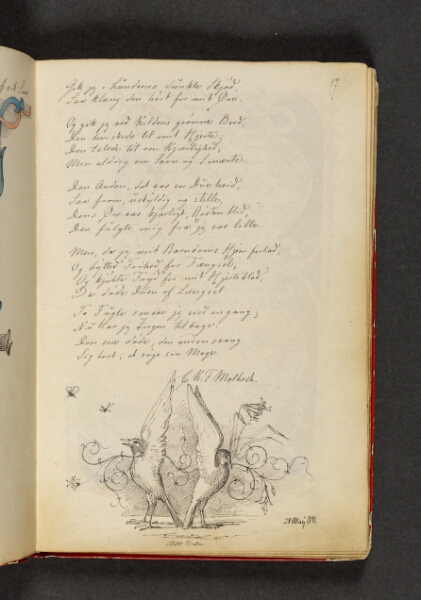 Gik jeg i Lundenes dunkle Skjød,
Saa klang den hört for mit Öre.
Og gik jeg ved Kildens grønne Bred,
Den til mit Hjerte,
Den talede tit om Kjærlighed,
Men aldrig om Savn og Smerte.
Den Anden, det var en Due hvid,
Saa from, uskyldig og stille,
Dens Øie var kjærligt, Rösten blid,
Den fulgte mig fra jeg var lille.
Men, da jeg mit Barndoms Hjem forlod,
Og bytted Frihed for Fængsel,
Og kjøbte for mit Hjerteblod,
Da døde Duen af Længsel
To Fugle een gang;
Nu har jeg Ingen tilbage.
Den ene døde, den anden svang
Sig bort, at søge sin Mage.
C. K. F. Molbech.
17